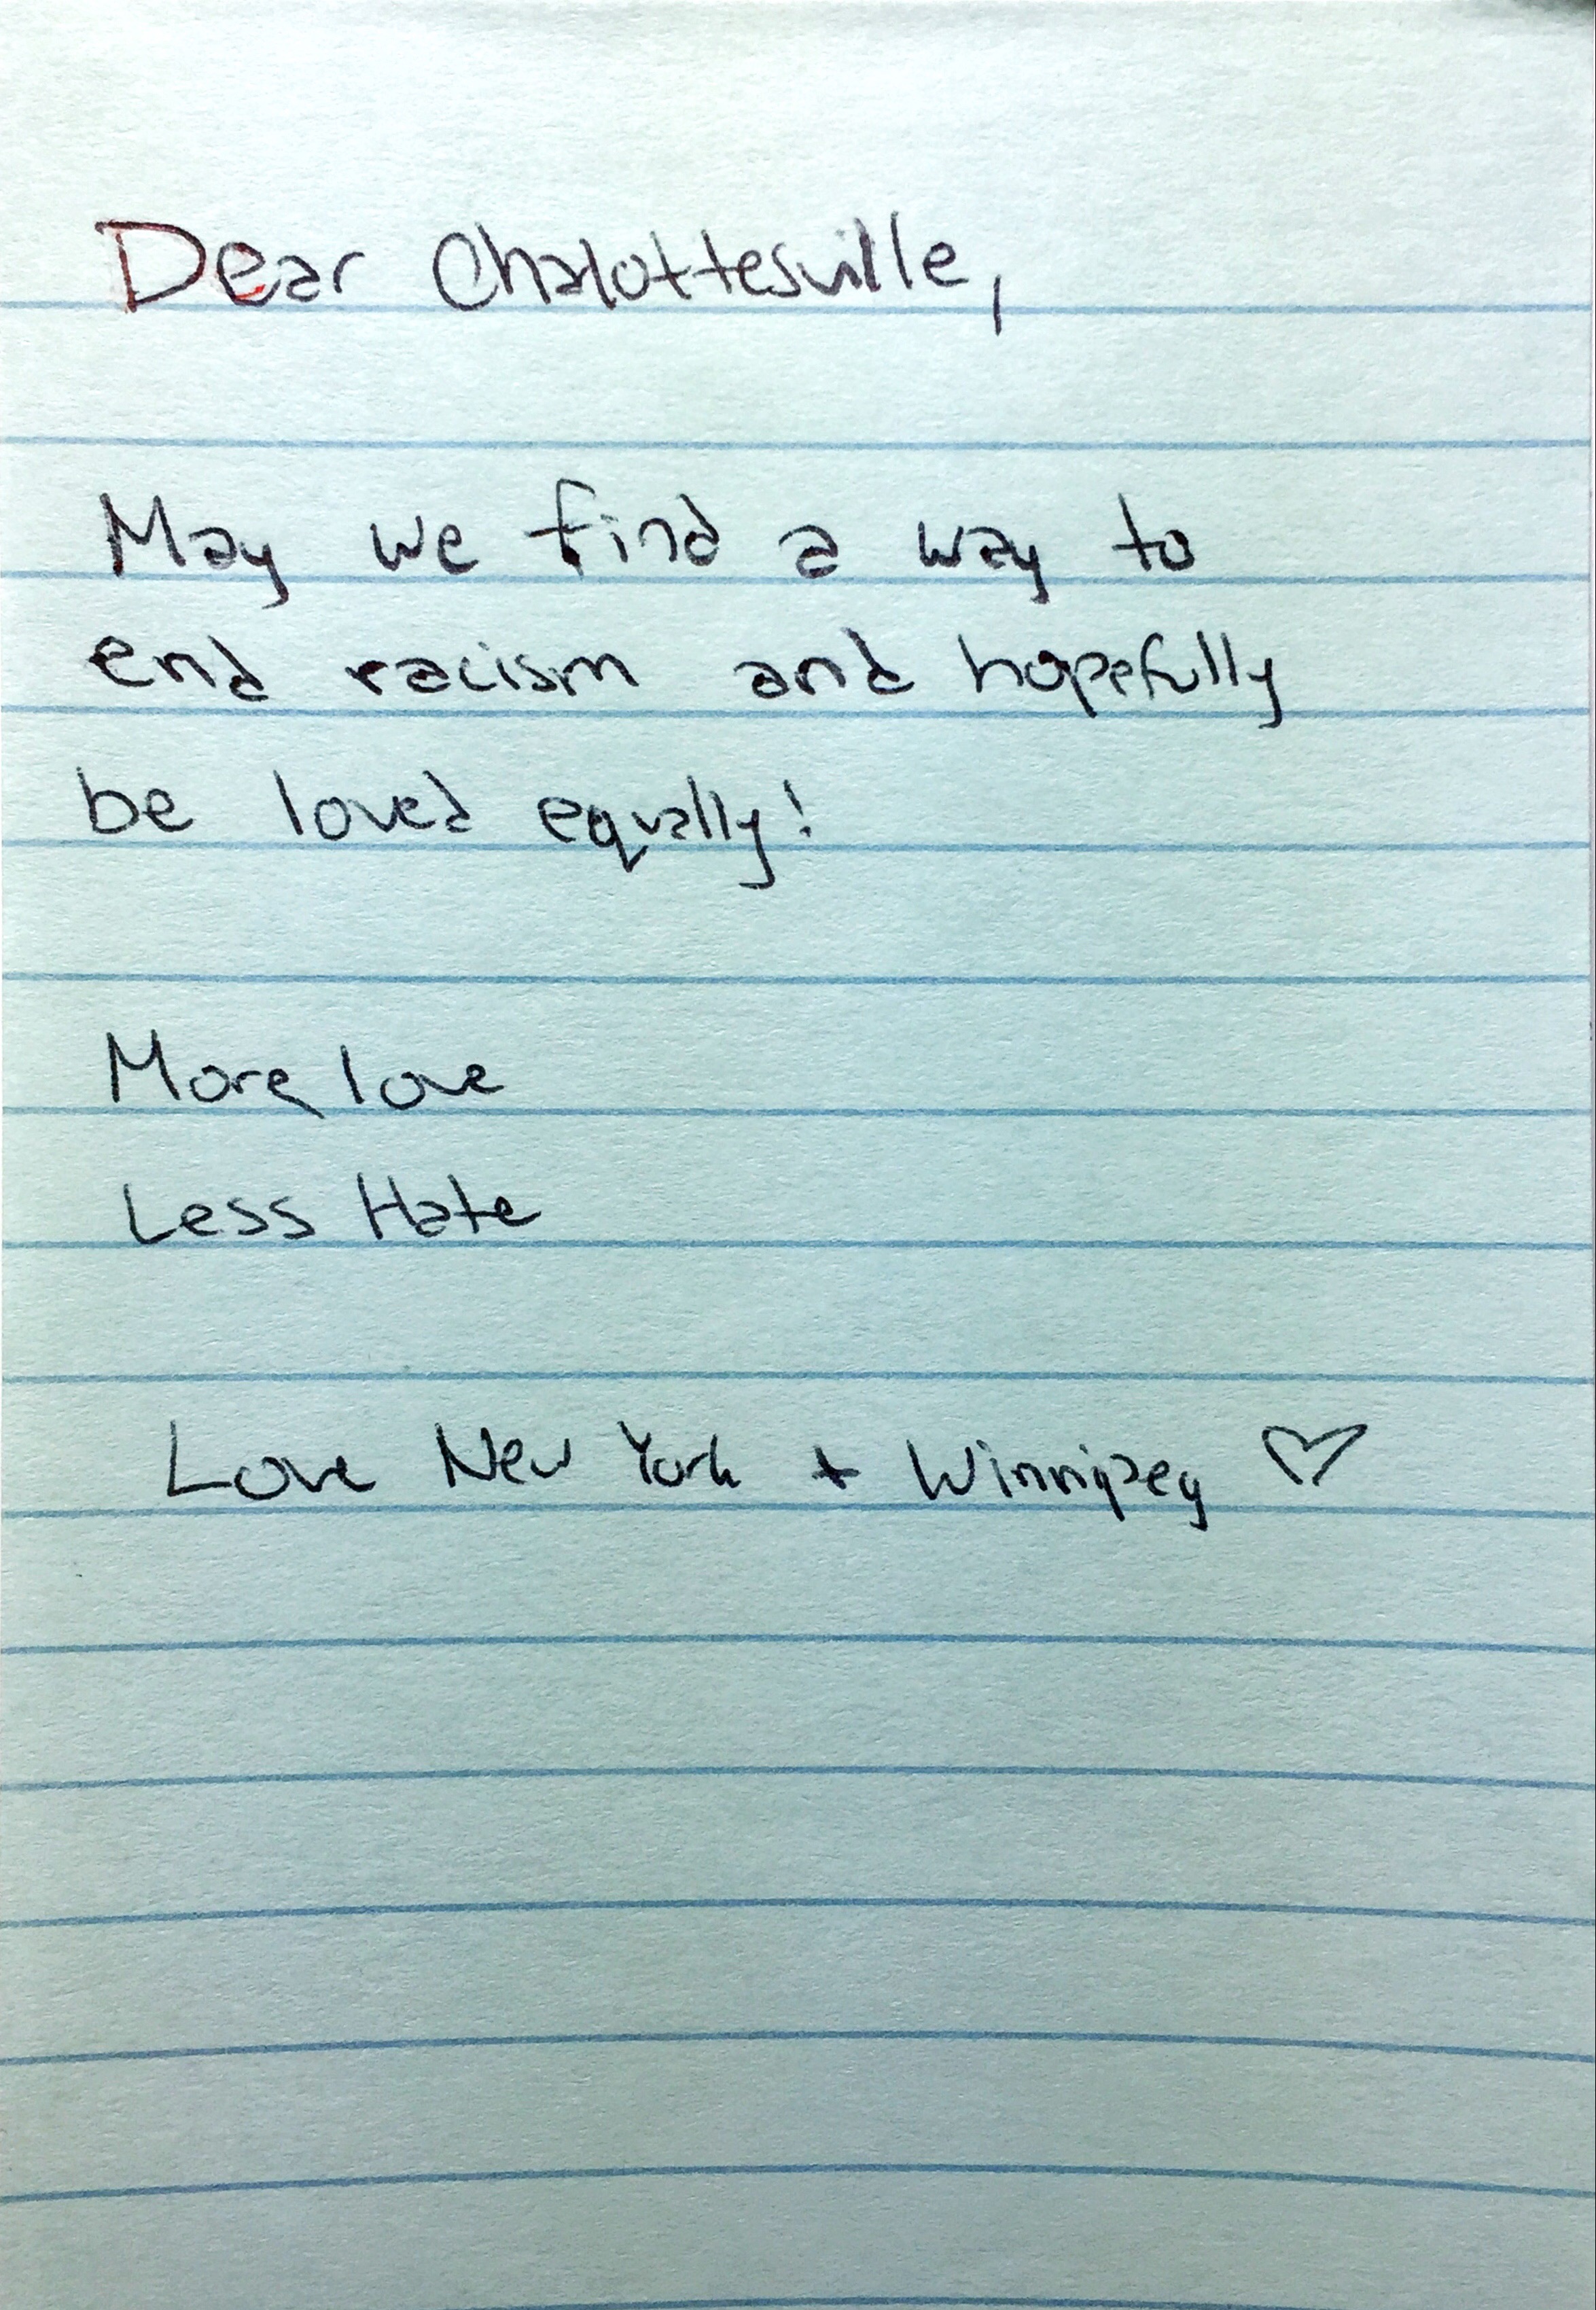 Dear Chalottesville,
May we find a way to
end racism and hopefully
be loved equally!
More love
Less Hate
Love New York + Winnipeg ♡